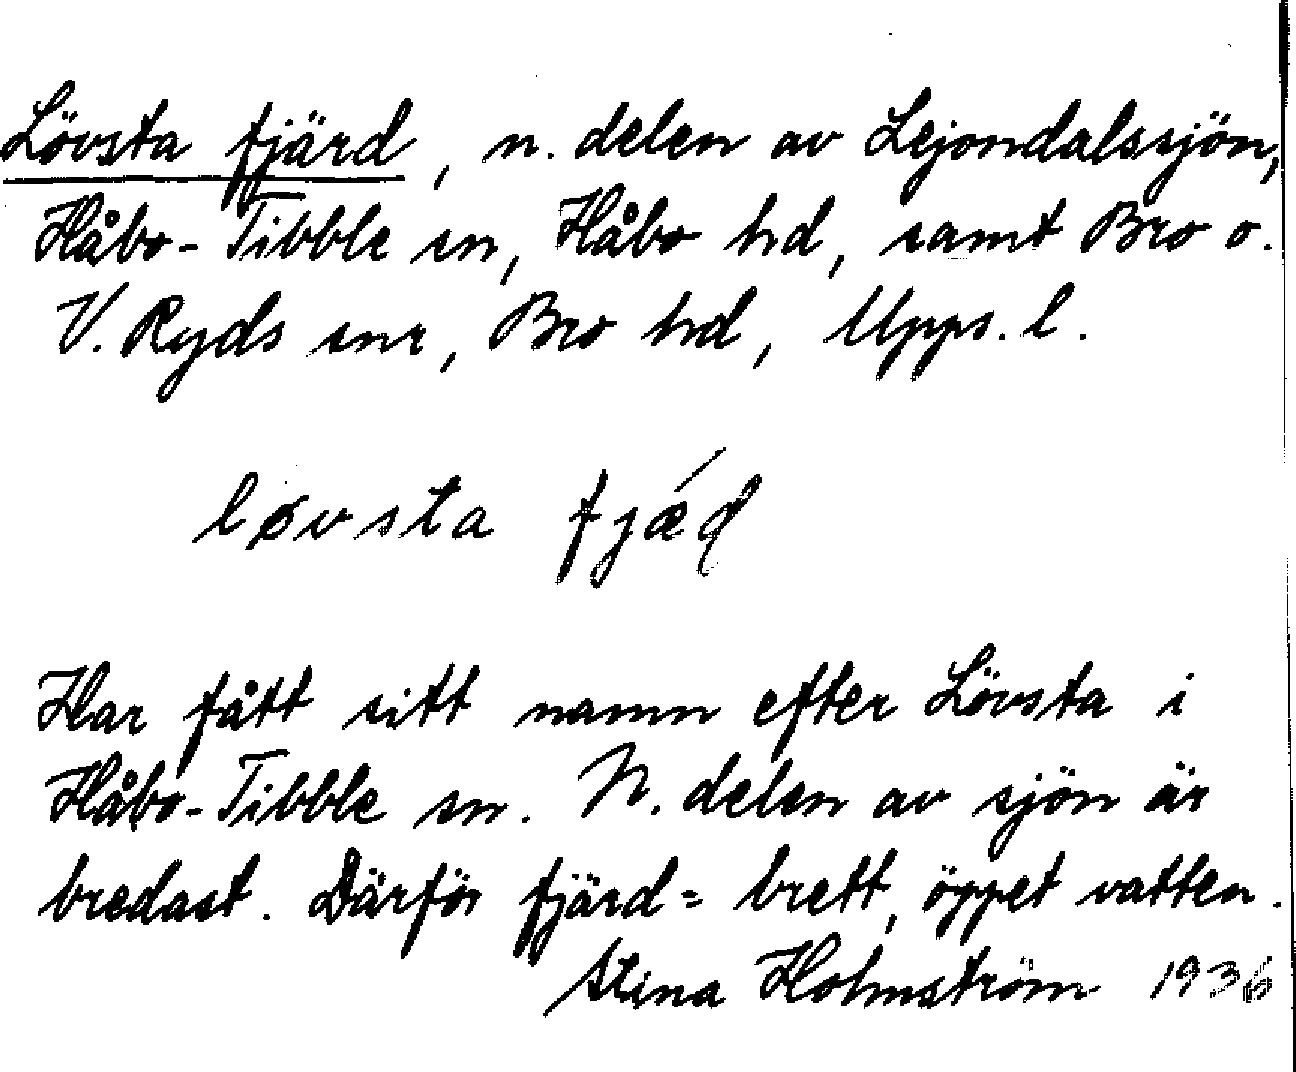 Lövsta fjärd, n. delen av Lejondalssjön,
Håbo-Tibble sn, Håbo hd, samt Bro o.
V. Ryds snr, Bro hd, Upps. l.
løvsta fjǽɖ
Har fått sitt namn efter Lövsta i
Håbo-Tibble sn. N. delen av sjön är
bredast. Därför fjärd = brett, öppet vatten.
Stina Holmström 1936